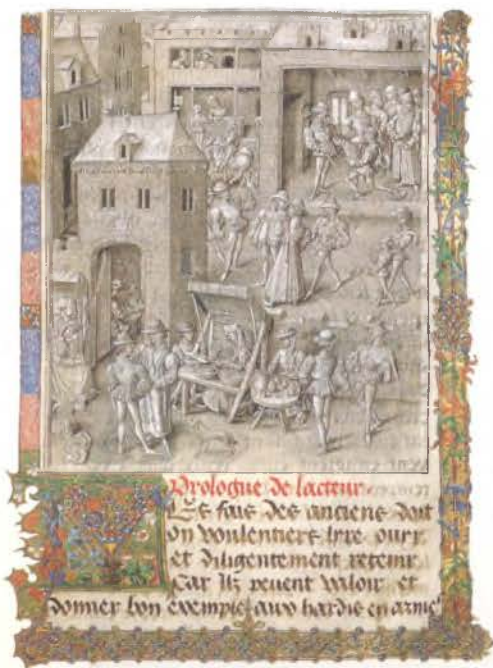 Prologue de lacteur
Les fais des anciens doit
on voulentiers lire ouyr
et diligentement retenir
Car ilz peuent valoir et
donner bon exemple aux hardis en armes